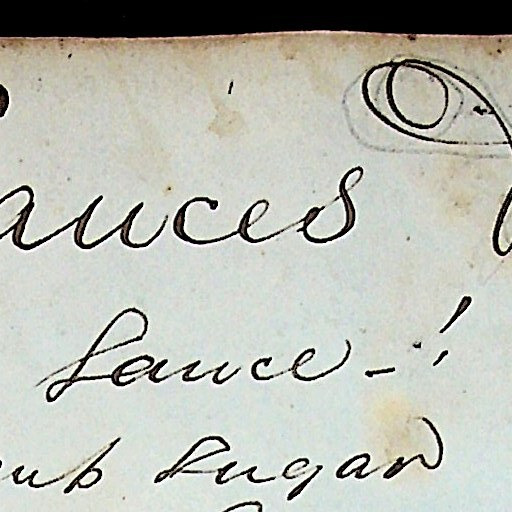 auces
Sauce - !
sugar